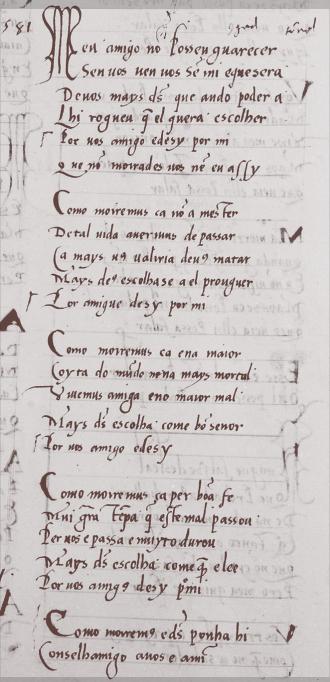 581
Meu amigo no posseu guarecer
Sen vos nen vos se mi e que sera
De vos mays ds que an do poder a
Lhi rogueu q̃ el quera escolher
Por vos amigo edesy por mi
Que nõ moirades vos nẽ eu assy
Como moiremus ca nõ a mester
De tal vida avermus de passar
Ca mays nꝯ valiria deuꝯ matar
Mays deꝯ escolha se a el prouguer
Por amigue desy por mi
Como moiremus ca ena maior
Coyta do mũdo nena mays mortal
Viuemus amiga eno maior mal
Mays ds escolha come bõ senor
Por vos amigo edesy
Como moiremus ca per bõa fe
Mui grã tẽpa q̃ este mal passou
Per nos e passa e muyto durou
Mays ds escolha come q̃ el e
Por vos amigo desy p mi
Como moiremꝯ e ds ponha hi
Conselhamigo a vos e ami